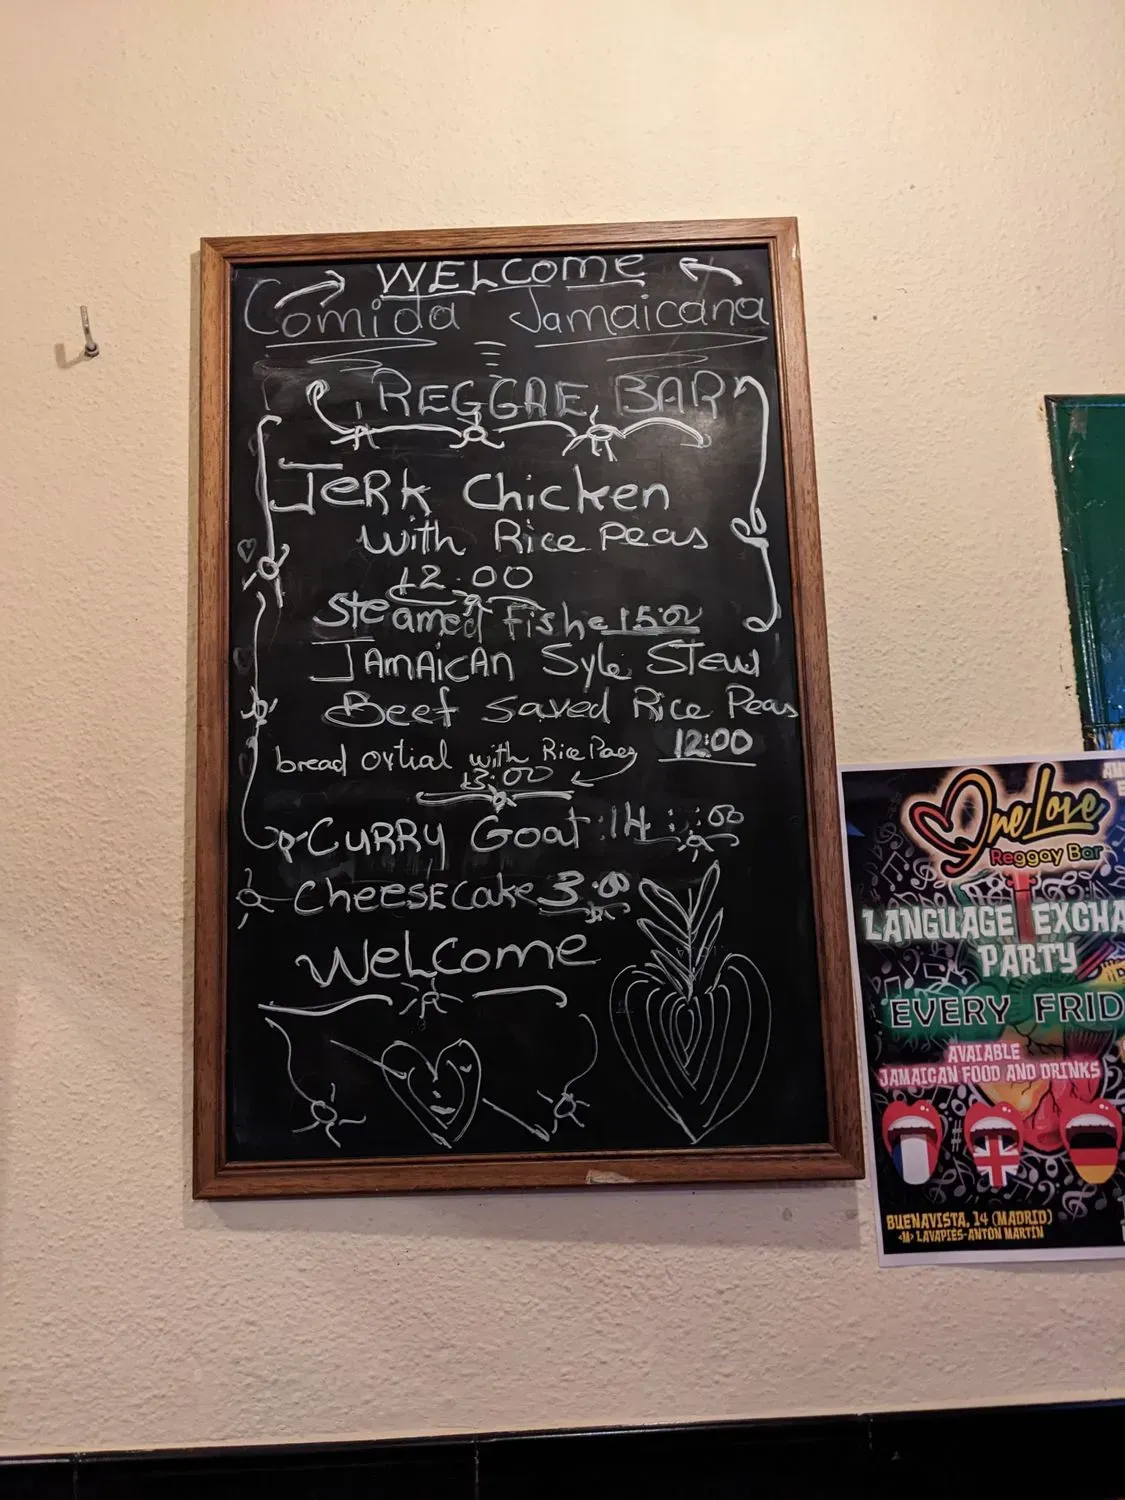 WELCOME
Comida Jamaicana
REGGAE BAR
JeRk Chicken
with Rice Peas
12.00
Steamed fishe 15:00
JAMAiCAn Syle Stew
Beef Saved Rice Peas
12:00
bread oxtial with Rice Paes
13:00
CURRY Goat :14:00
CheeseCake 3.00
WelCome
OneLove
Reggay Bar
LANGUAGE EXCHA
PARTY
EVERY FRID
AVAIABLE
JAMAICAN FOOD AND DRINKS
BUENAVISTA, 14 (MADRID)
<M> LAVAPIÉS-ANTON MARTIN